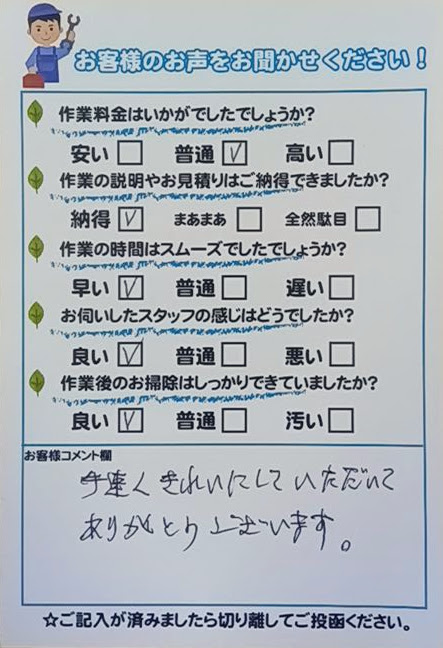 お客様のお声をお聞かせください!
作業料金はいかがでしたでしょうか?
安い □ 普通 ☑ 高い □
作業の説明やお見積りはご納得できましたか?
納得 ☑ まあまあ □ 全然駄目 □
作業の時間はスムーズでしたでしょうか?
早い ☑ 普通 □ 遅い □
お伺いしたスタッフの感じはどうでしたか?
良い ☑ 普通 □ 悪い □
作業後のお掃除はしっかりできていましたか?
良い ☑ 普通 □ 汚い □
お客様コメント欄
手速くきれいにしていただいて
ありがとうございます。
☆ご記入が済みましたら切り離してご投函ください。